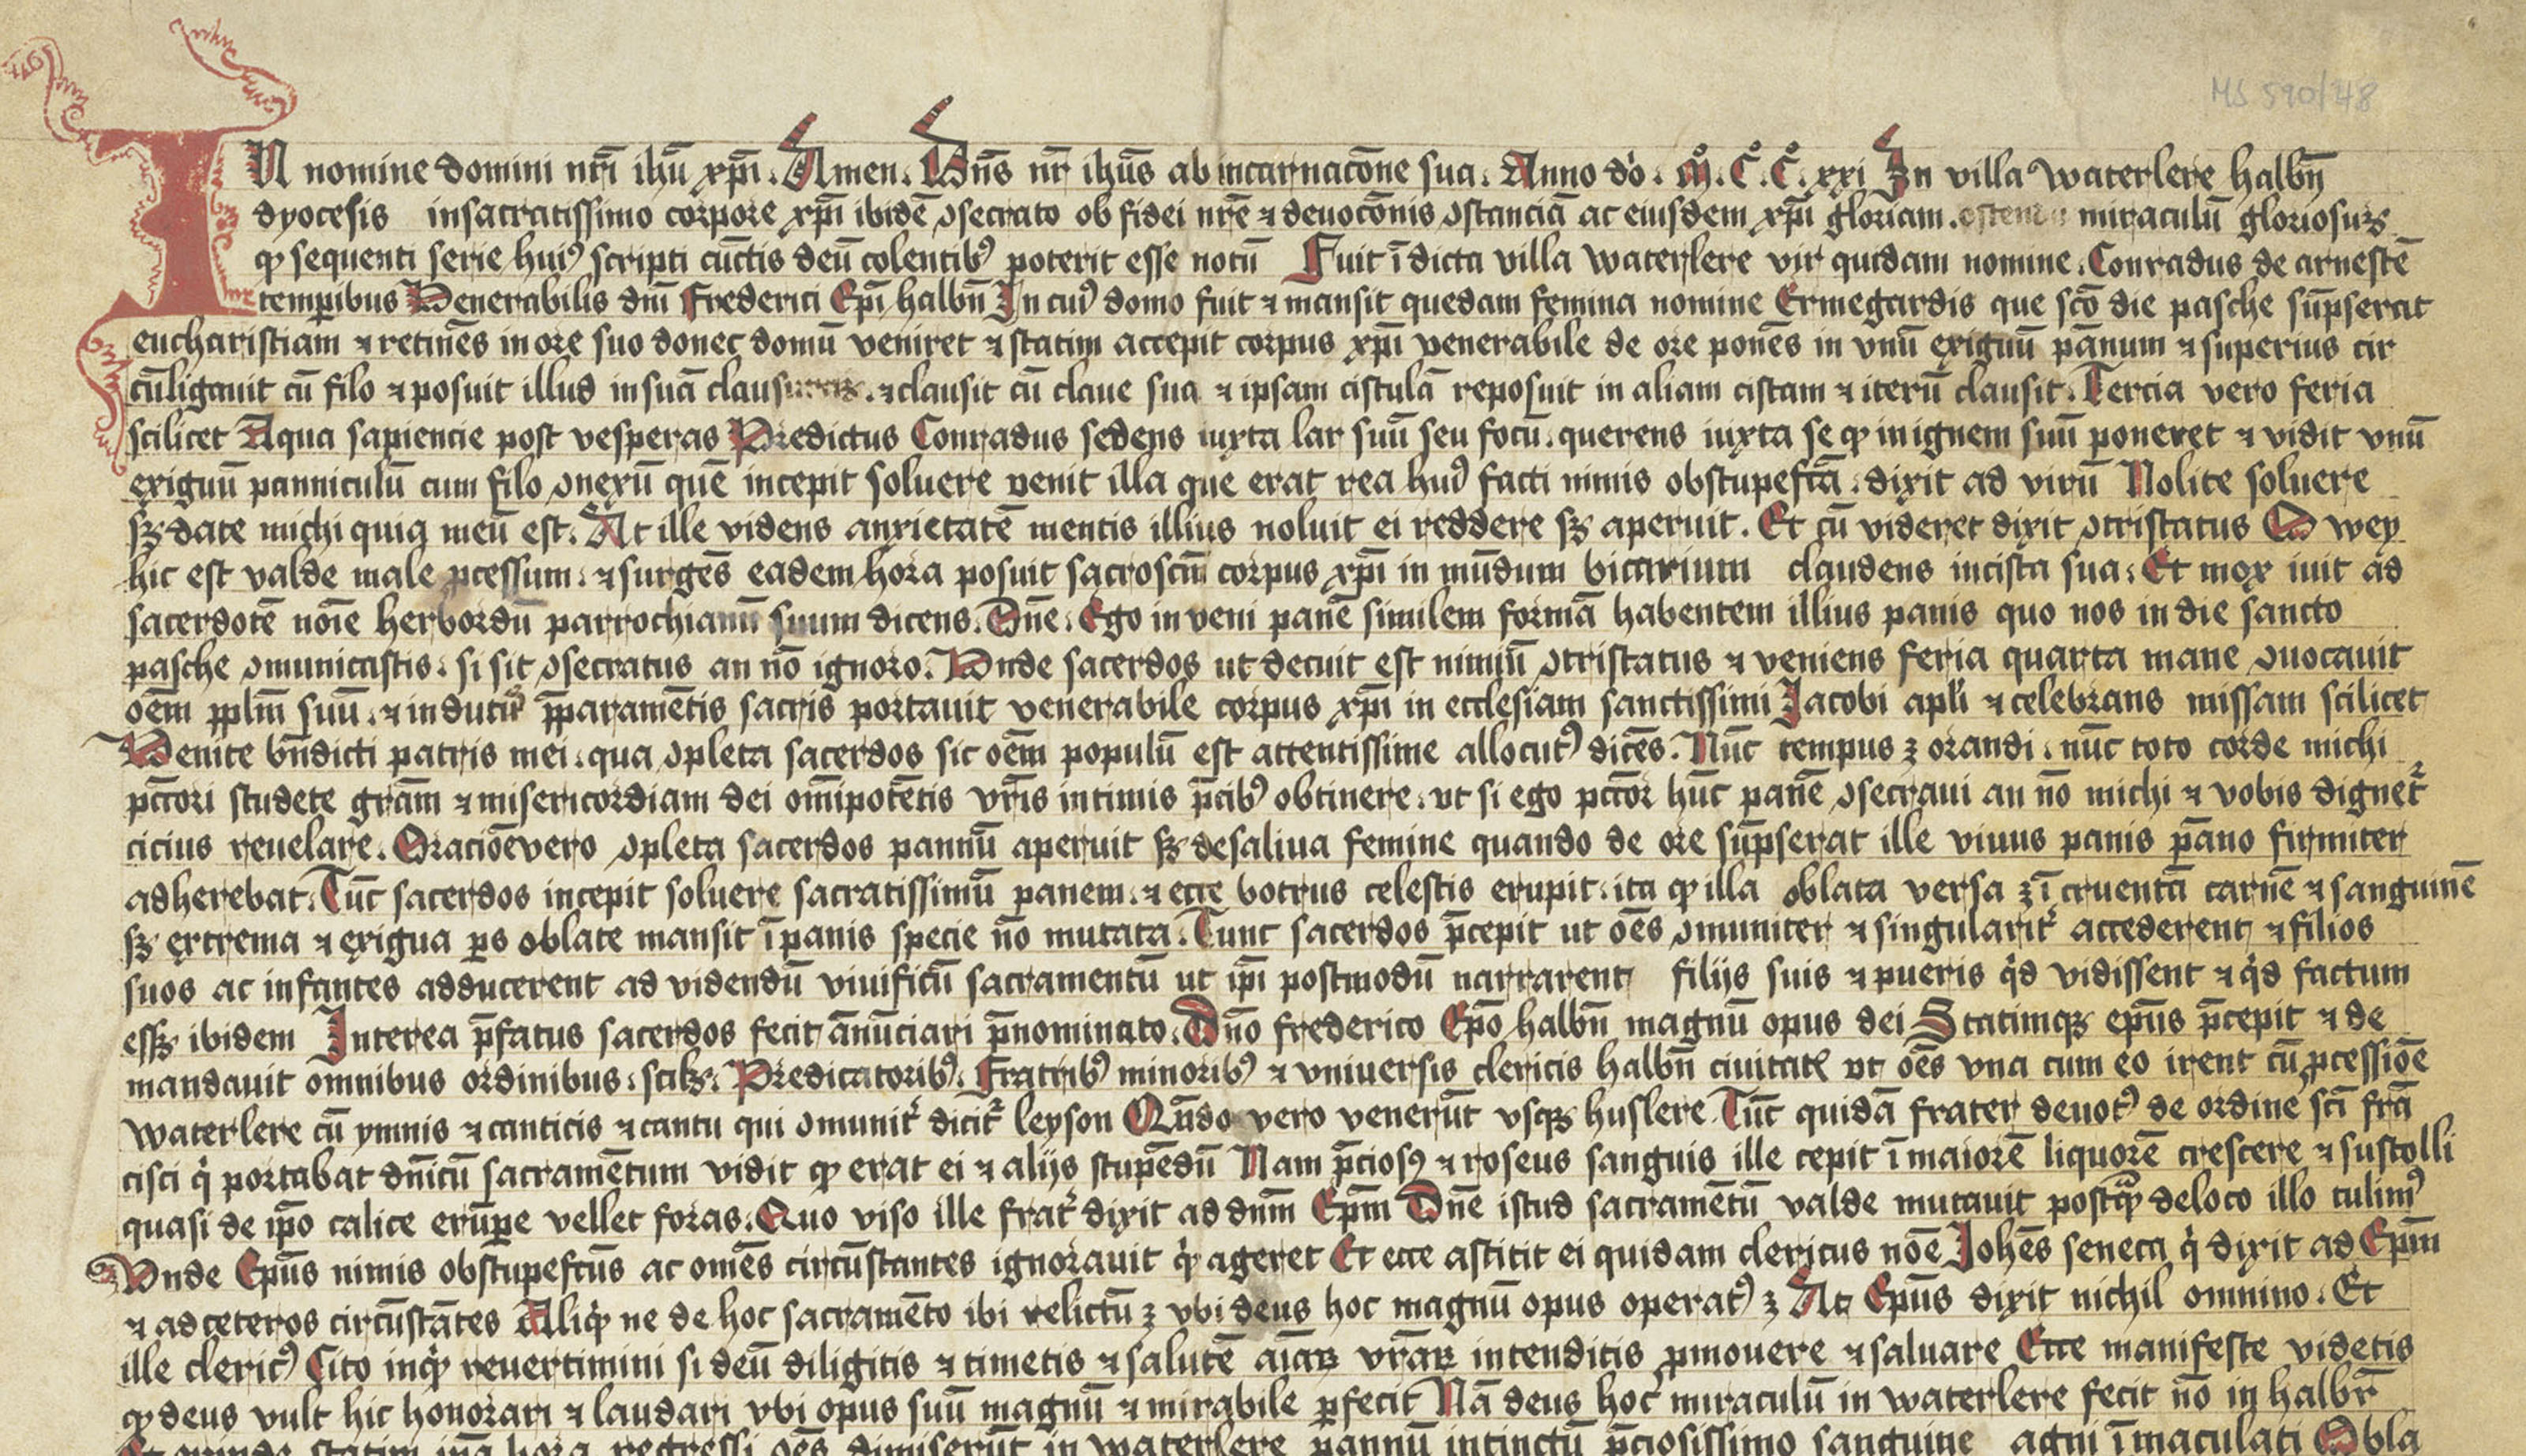 MS 590/48
IN nomine domini nr̄i ihū xp̄i. Amen. Dn̄s nr̄ ihūs ab incarnacōne sua. Anno do. M. C. C. xxi In villa waterlere halbn̄
dyocesis in sacratissimo corpore xp̄i ibidē ꝯsecrato ob fidei nr̄e ⁊ deuocōnis ꝯstanciā ac eiusdem xp̄i gloriam. miraculū gloriosuꝫ
ꝙ sequenti serie huiꝰ scripti cūctis deū colentibꝰ poterit esse notū Fuit ī dicta villa waterlere vir quidam nomine. Conradus de arnestē
temꝑibus Venerabilis dn̄i Frederici Ep̄i halbn̄ In cuiꝰ domo fuit ⁊ mansit quedam femina nomine Ermegardis que scō die pasche sūpserat
eucharistiam ⁊ retinēs in ore suo donec domū veniret ⁊ statim accepit corpus xp̄i venerabile de ore ponēs in vnū exiguū pānum ⁊ superius cir
cūligauit cū filo ⁊ posuit illud in suā ⁊ clausit cū claue sua ⁊ ipsam cistulā reposuit in aliam cistam ⁊ iterū clausit. Tercia vero feria
scilicet Aqua sapiencie post vesperas Predictus Conradus sedens iuxta lar suū seu focū. querens iuxta se ꝙ in ignem suū poneret ⁊ vidit vnū
exiguū panniculū cum filo ꝯnexū quē incepit soluere venit illa que erat rea huiꝰ facti nimis obstupefc̄ā. dixit ad virū Nolite soluere
sꝫ date michi quia meū est. At ille videns anxietatē mentis illius noluit ei reddere sꝫ aperuit. Et cū videret dixit ꝯtristatus O wey
hic est valde male ꝓcessum. ⁊ surgēs eadem hora posuit sacroscm̄ corpus xp̄i in mūdum bicarium claudens in cista sua. Et mox iuit ad
sacerdotē noīe herbordū parrochianū suum dicens. Dn̄e. Ego in veni panē similem formā habentem illius panis quo nos in die sancto
pasche ꝯmunicastis. si sit ꝯsecratus an nō ignoro. Vnde sacerdos ut decuit est nimiū ꝯtristatus ⁊ veniens feria quarta mane ꝯuocauit
oēm pp̄lm suū. ⁊ indutꝰ p̄paramētis sacris portauit venerabile corpus xp̄i in ecclesiam sanctissimi Jacobi apl̄i ⁊ celebrans missam scilicet
Venite bn̄dicti patris mei. qua ꝯpleta sacerdos sic oēm populū est attentissime allocutꝰ dicēs. Nūc tempus ꝫ orandi. nūc toto corde michi
pctōri studete grām ⁊ misericordiam dei om̄ipotētis vr̄is intimis p̄cibꝰ obtinere. ut si ego pctōr hūc panē ꝯsecraui an nō michi ⁊ vobis dignet᷑
cicius reuelare. Oraciōe vero ꝯpleta sacerdos pannū aperuit sꝫ de saliua femine quando de ore sūpserat ille viuus panis pāno firmiter
adherebat. Tūc sacerdos incepit soluere sacratissimū panem. ⁊ ecce botrus celestis erupit. ita ꝙ illa oblata versa ꝫ ī cruentā carnē ⁊ sanguinē
sꝫ extrema ⁊ exigua ꝑs oblate mansit ī panis specie nō mutata. Tunc sacerdos p̄cepit ut oēs ꝯmuniter ⁊ singularit᷑ accederent ⁊ filios
suos ac infantes adducerent ad videndū viuificū sacramentū ut ip̄i postmodū narrarent filijs suis ⁊ pueris qd vidissent ⁊ qd factum
essꝫ ibidem Interea p̄fatus sacerdos fecit ānūciari p̄nominato. Dn̄o frederico Ep̄o halbn̄ magnū opus dei Statimqꝫ ep̄us p̄cepit ⁊ de
mandauit omnibus ordinibus. scilꝫ. Predicatoribꝰ. Fratribꝰ minoribꝰ ⁊ vniuersis clericis halbn̄ ciuitatꝭ ut oēs vna cum eo irent cū ꝓcessiōe
waterlere cū ymnis ⁊ canticis ⁊ cantu qui ꝯmunit᷑ dicit᷑ leyson Qn̄do vero venerūt vsqꝫ huslere Tūc quidā frater deuotꝰ de ordine sc̄i frā
cisci q portabat dn̄icū sacramētum vidit ꝙ erat ei ⁊ alijs stupēdū Nam p̄ciosꝰ ⁊ roseus sanguis ille cepit ī maiorē liquorē crescere ⁊ sustolli
quasi de ip̄o calice erūꝑe vellet foras. Quo viso ille frat᷑ dixit ad dn̄m Ep̄m Dn̄e istud sacramētū valde mutauit postꝙ̄ de loco illo tulimꝰ
Vnde Ep̄us nimis obstupefc̄us ac omēs circūstantes ignorauit qͥ ageret Et ecce astitit ei quidam clericus noīe Johēs seneca q dixit ad Ep̄m
⁊ ad ceteros circūstātes Aliqͥ ne de hoc sacramēto ibi relictū ꝫ vbi deus hoc magnū opus operatꝰ ꝫ At Ep̄us dixit nichil omnino. Et
ille clericꝰ Cito inqͥ reuertimini si deū diligitis ⁊ timetis ⁊ salutē aīaꝝ vr̄aꝝ intenditis ꝓmouere ⁊ saluare Ecce manifeste videtis
ꝙ deus vult hic honorari ⁊ laudari vbi opus suū magnū ⁊ mirabile ꝑfecit Nā deus hoc miraculū in waterlere fecit nō in halbr̄
regressi oēs dimiserūt in waterlere pannū intinctū p̄ciosissimo sanguine agni īmaculati Obla